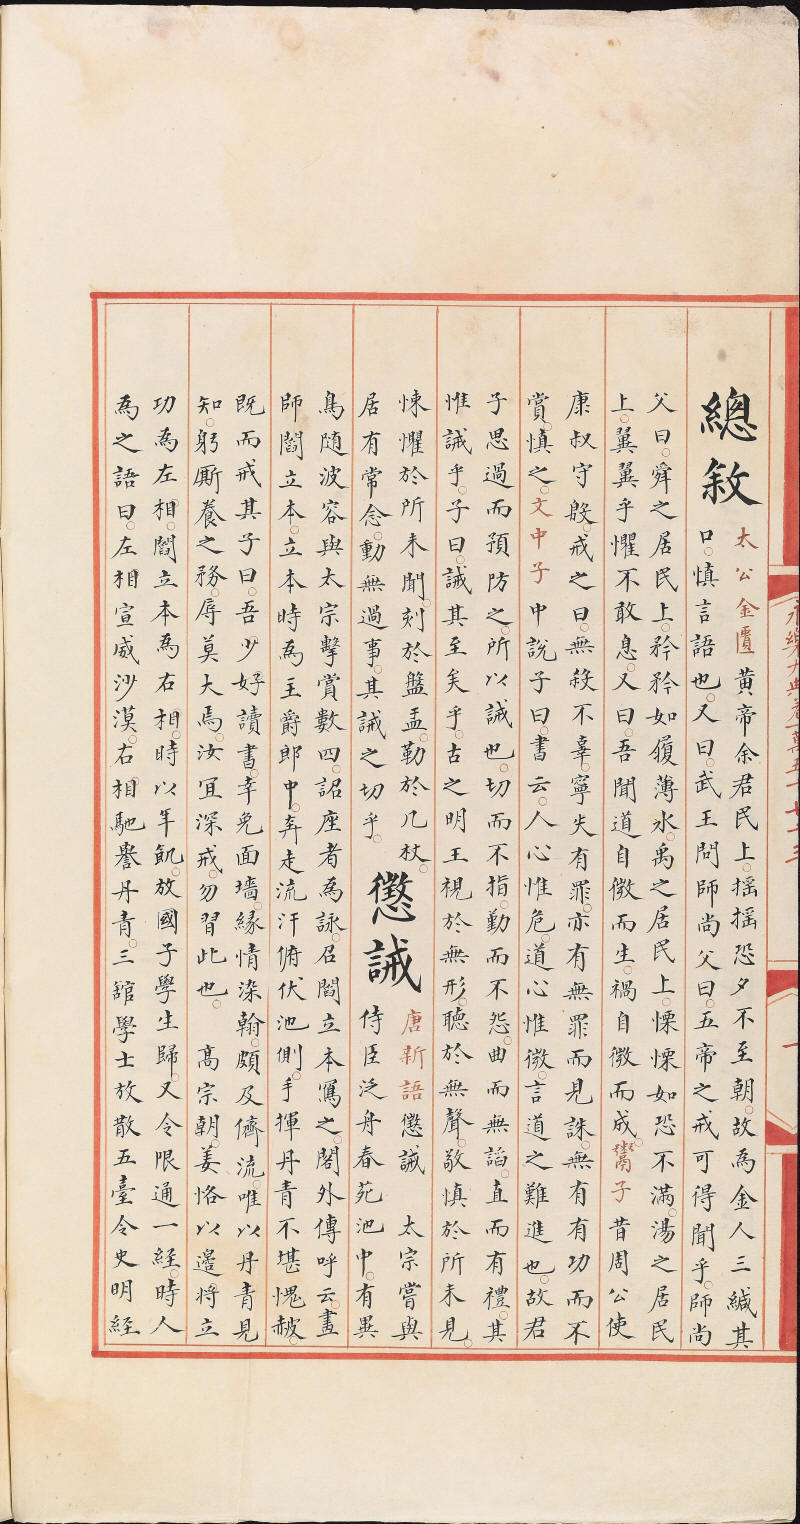 永樂大典卷一萬五千七十三
一
總敘
太公金匱黃帝余君民上。搖搖恐夕不至朝。故為金人三緘其
口。慎言語也。又曰。武王問師尚父曰。五帝之戒可得聞乎。師尚
父曰。舜之居民上。矜矜如履薄氷。禹之居民上。慄慄如恐不滿。湯之居民
上。翼翼乎懼不敢息。又曰。吾聞道自微而生。禍自微而成。鬻子昔周公使
康叔守殷。戒之曰。無殺不辜。寧失有罪。亦有無罪而見誅。無有有功而不
賞。慎之。文中子中說子曰。書云。人心惟危。道心惟微。言道之難進也。故君
子思過而預防之。所以誡也。切而不指。勤而不怨。曲而無諂。直而有禮。其
惟誡乎。子曰。誡其至矣乎。古之明王視於無形。聽於無聲。敬慎於所未見。
悚懼於所未聞。刻於盤盂。勒於几杖。
居有常念。動無過事。其誡之切乎。
懲誡
唐新語懲誡　太宗嘗與
侍臣泛舟春苑池中。有異
鳥随波容與太宗擊賞數四。詔座者為詠。召閻立本寫之。閣外傳呼云。畫
師閻立本。立本時為主爵郎中。奔走流汗俯伏池側。手揮丹青不堪愧赧。
既而戒其子曰。吾少好讀書。幸免面墻。緣情染翰。頗及儕流。唯以丹青見
知。躬厮養之務。辱莫大焉。汝宜深戒。勿習此也。　高宗朝。姜恪以邊將立
功為左相。閻立本為右相。時以年飢。放國子學生歸。又令限通一經。時人
為之語曰。左相宣威沙漠。右相馳譽丹青。三舘學士放散五臺令史明經